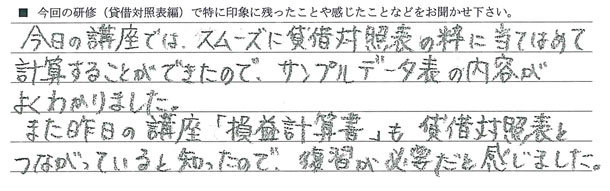 ■ 今回の研修（貸借対照表編）で特に印象に残ったことや感じたことなどをお聞かせ下さい。
今日の講座では、スムーズに貸借対照表の枠に当てはめて
計算することができたので、サンプルデータ表の内容が
よくわかりました。
また昨日の講座「損益計算書」も貸借対照表と
つながっていると知ったので、復習が必要だと感じました。